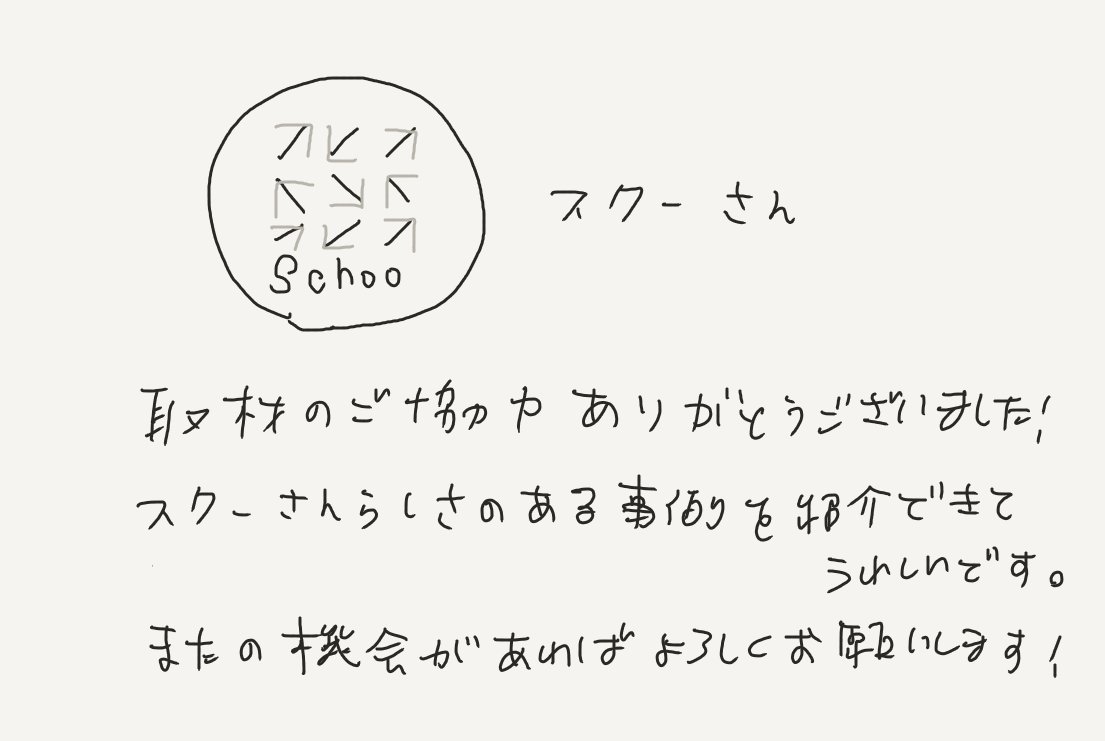 Schoo
スクーさん
取材のご協力ありがとうございました!
スクーさんらしさのある事例を紹介できて
うれしいです。
またの機会があればよろしくお願いします!